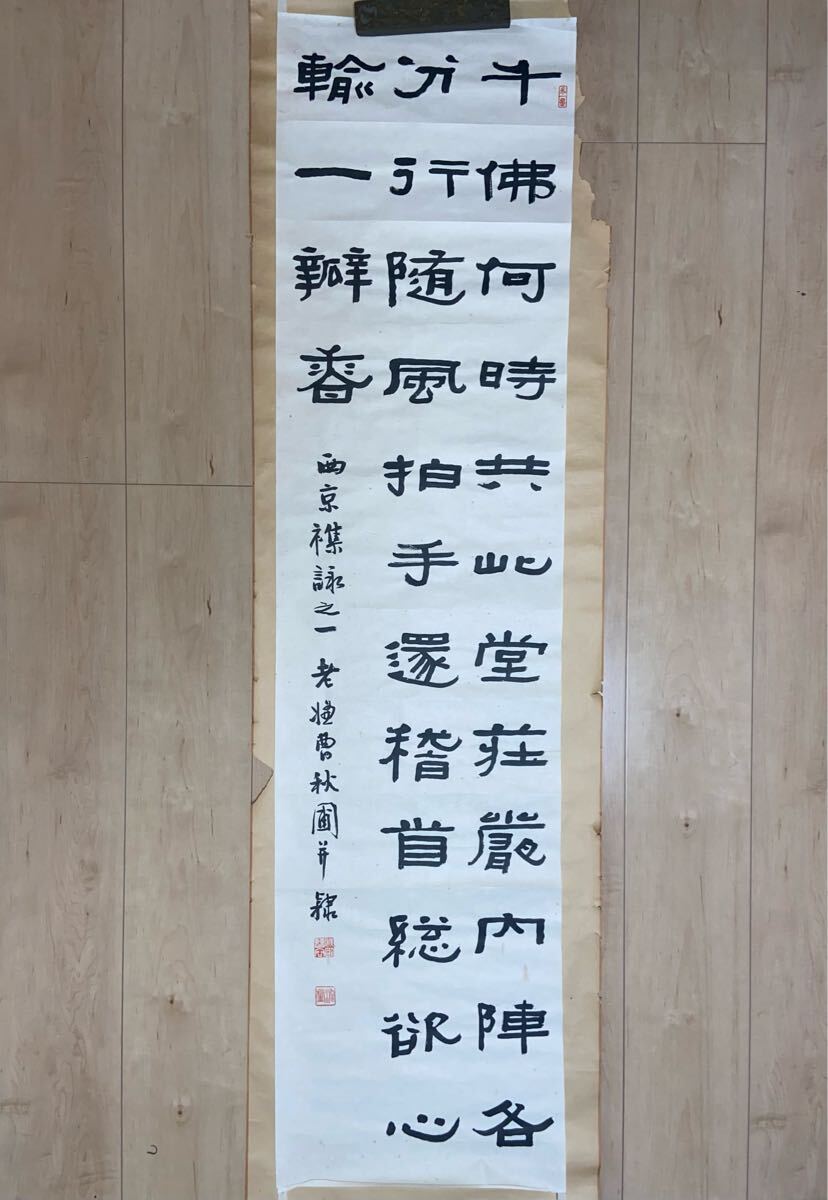 千佛何時共此堂莊嚴内陣各
分行隨風拍手還稽首總欲心
輸一瓣香
西京襍詠之一 老嫌曹秋圃并隸